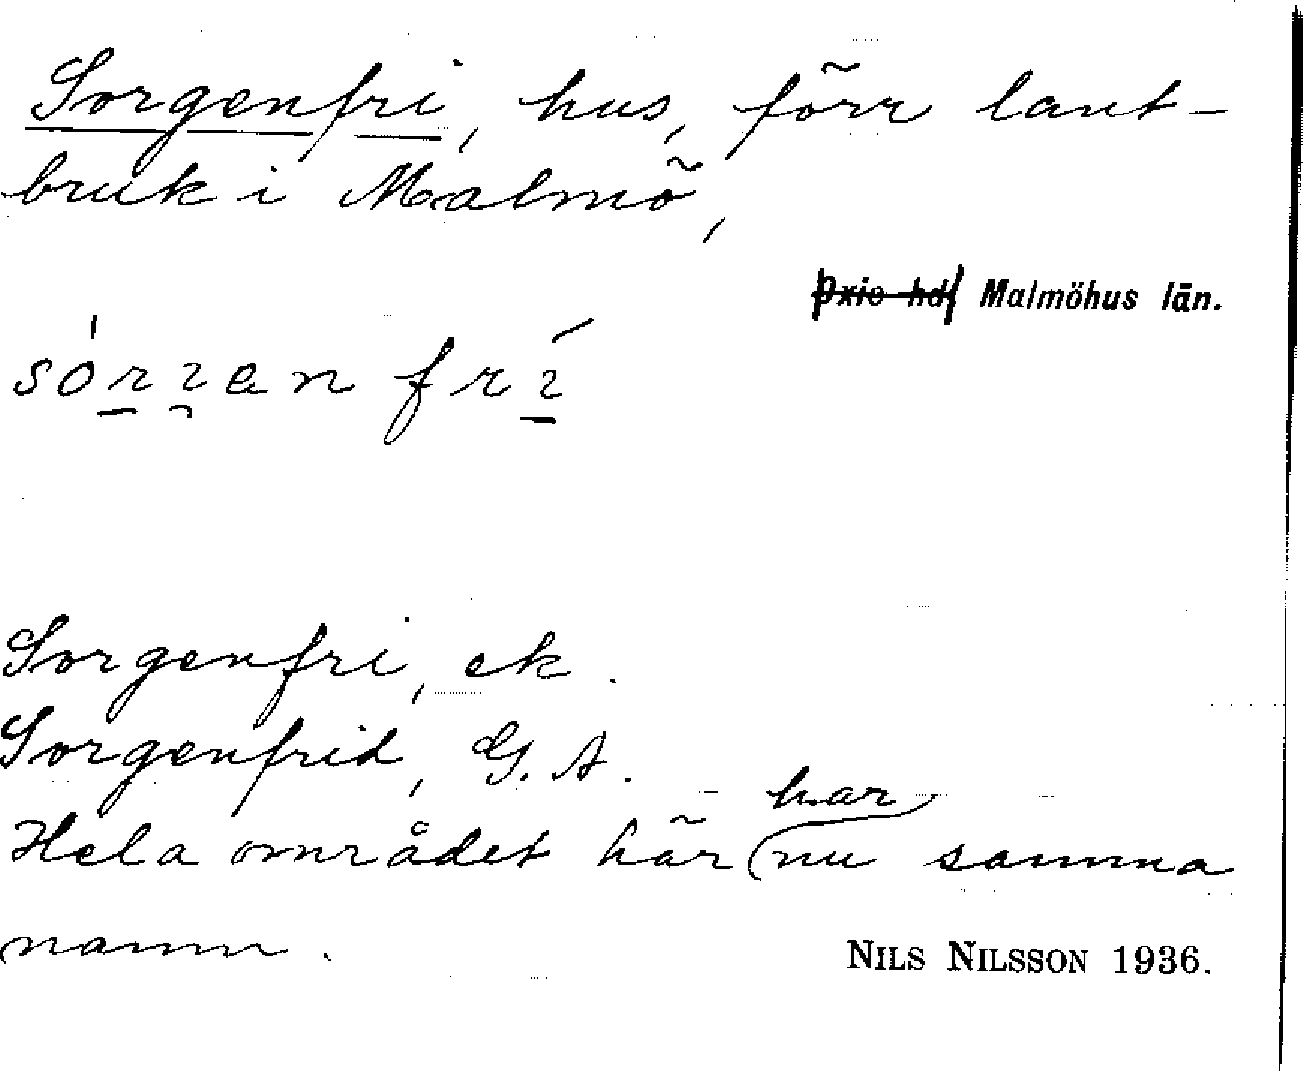 Sorgenfri, hus, förr lant-
bruk i Malmö,
Oxie hd, Malmöhus län.
Sorgenfri, ek.
Sorgenfrid, G. A.
Hela området här har nu samma
namn.
NILS NILSSON 1936.